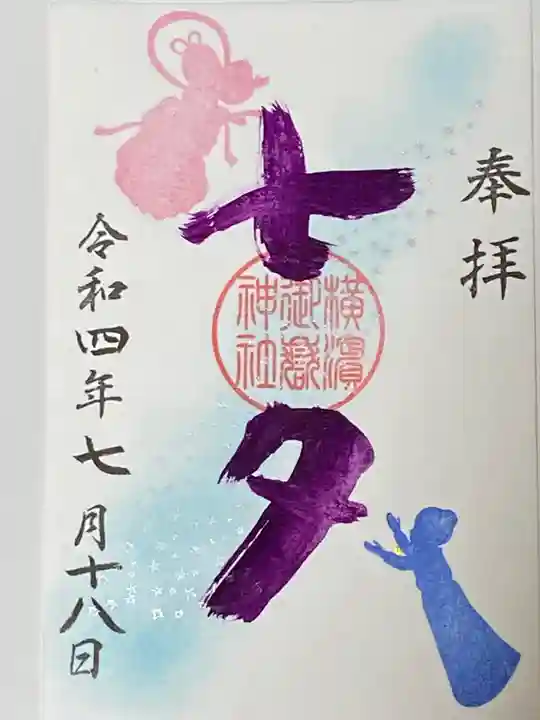 奉拝
七夕
横濵
御嶽
神社
令和四年七月十八日